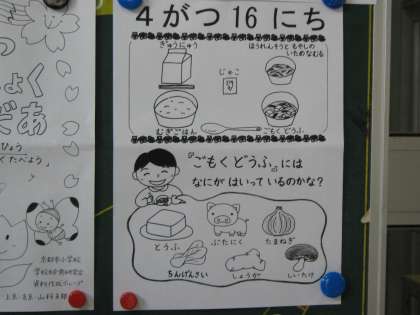 4がつ16にち
ぎゅうにゅう
ほうれんそうと もやしの
いためなむる
じゃこ
むぎごはん
ごもくどうふ
『ごもくどうふ』には
なにが はいって いるのかな?
とうふ
ぶたにく
たまねぎ
ちんげんさい
しょうが
しいたけ
ょく
だあ
ひょう
くたべよう
京都市小学校